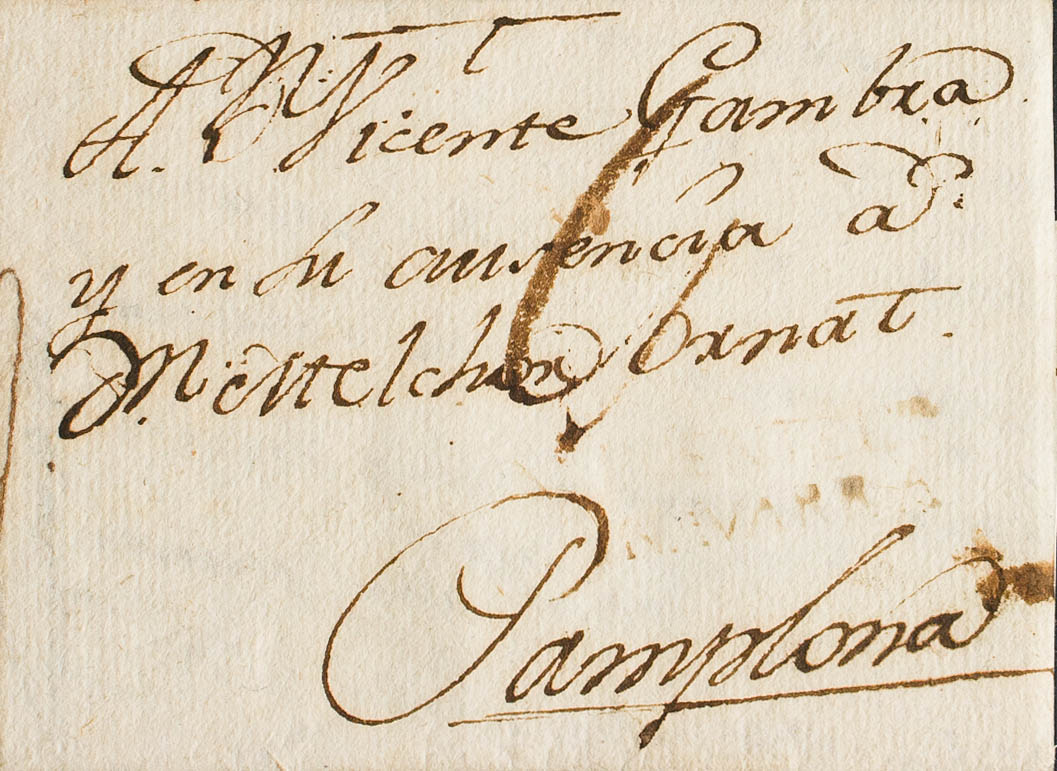 A. Dn Vicente Gambra
y en su ausencia a
Dn. Melchor Ornat.
Pamplona